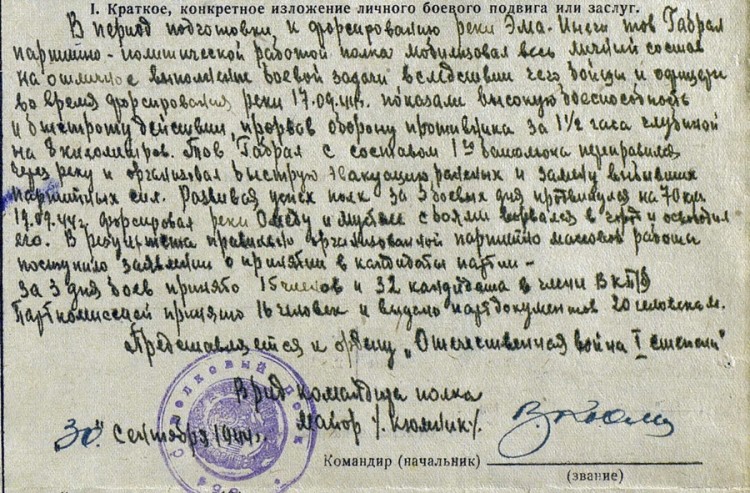 I. Краткое, конкретное изложение личного боевого подвига или заслуг.
В период подготовки к форсированию реки Эма-Иыеги тов Габрал
партийно-политической работой полка мобилизовал весь личный состав
на отличное выполнение боевой задачи вследствии чего бойцы и офицеры
во время форсирования реки 17.09.44г. показали высокую боеспособность
и быстроту действий, прорвав оборону противника за 1½ часа глубиной
на 8 километров. Тов Габрал с составом 1го батальона переправился
через реку и организовал быструю эвакуацию раненых и замену выбывших
партийных сил. Развивая успех полк за 3 боевых дня продвинулся на 70 км
19.09.44г. форсировал реки и с боями ворвался в и освободил
его. В результате правильно организованной партийно массовой работы
поступило заявлении о принятии в кандидаты партии –
за 3 дня боев принято 15 членов и 32 кандидата в члени ВКП/б
Парткомиссией принято 16 человек и выдано партдокументов 20 человекам.
Представляется к ордену „Отечественная война I степени"
Врид командира полка
майор /. Кюмник /.
30" сентября 1944г.
Командир (начальник)
(звание)